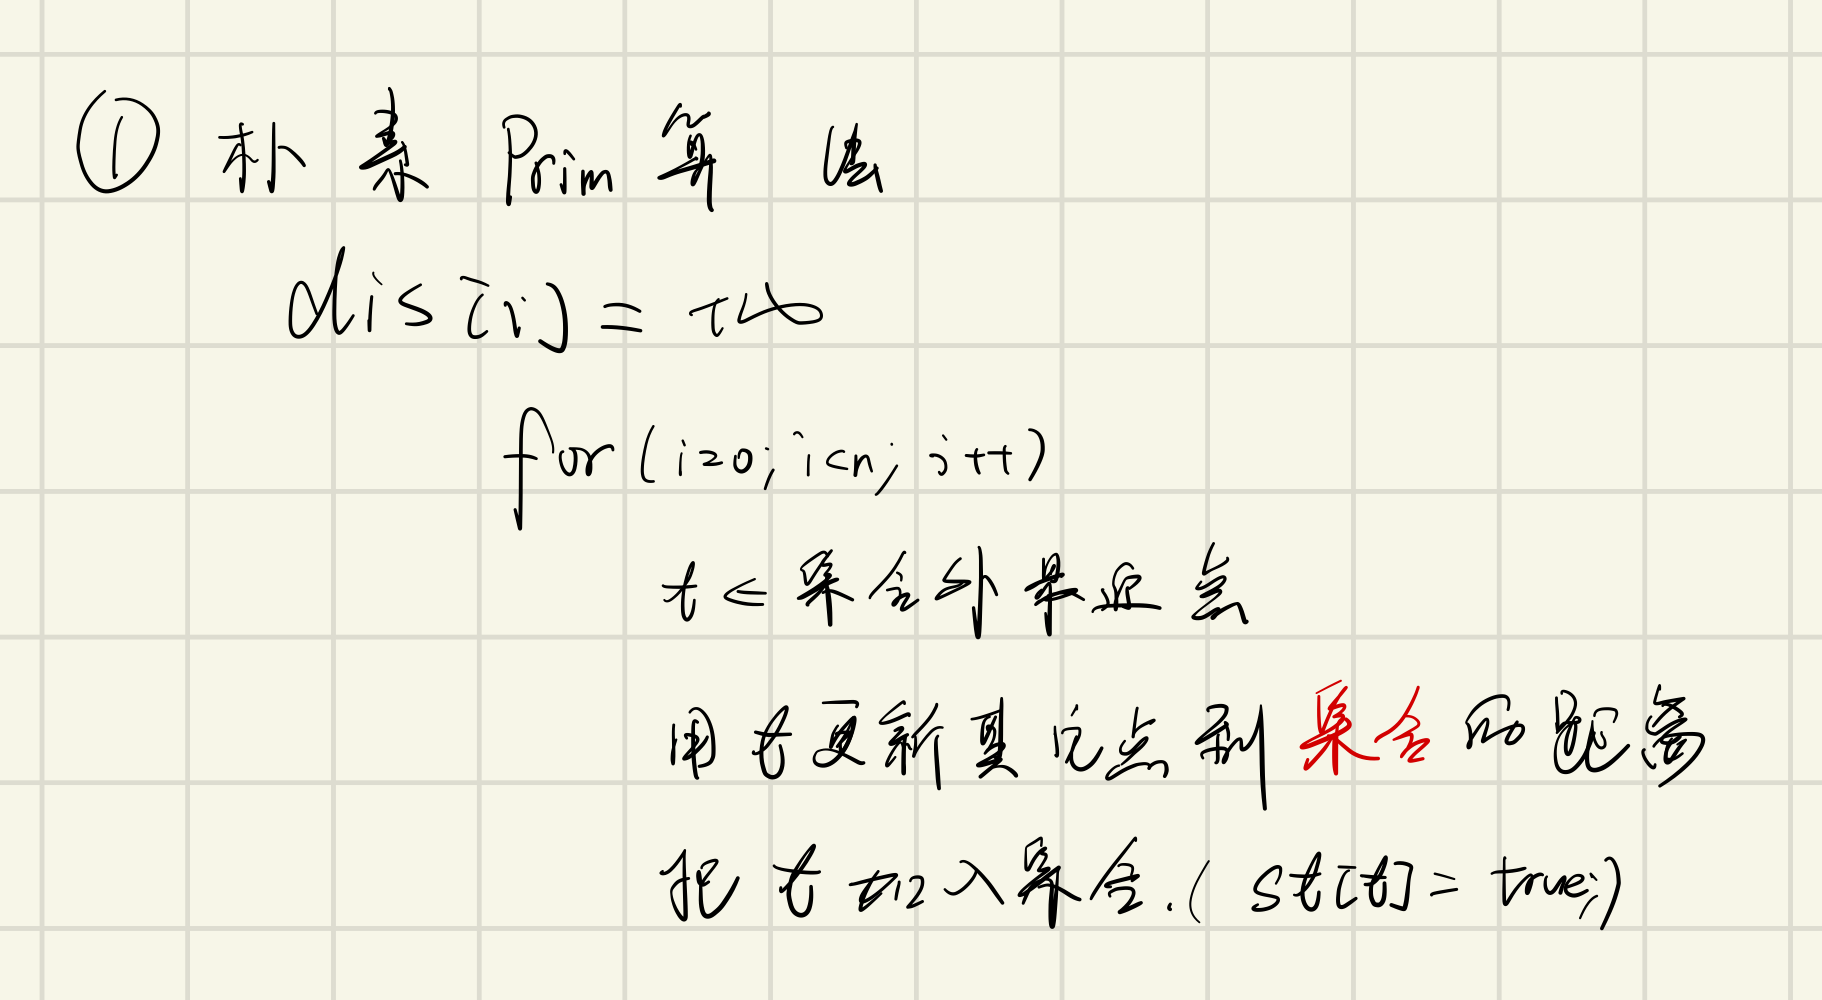 ① 朴素 Prim 算法
dis[i] = +∞
for (i=0; i<n; i++)
t ← 集合外最近点
用t更新其它点到集合的距离
把t加入集合.( st[t] = true;)